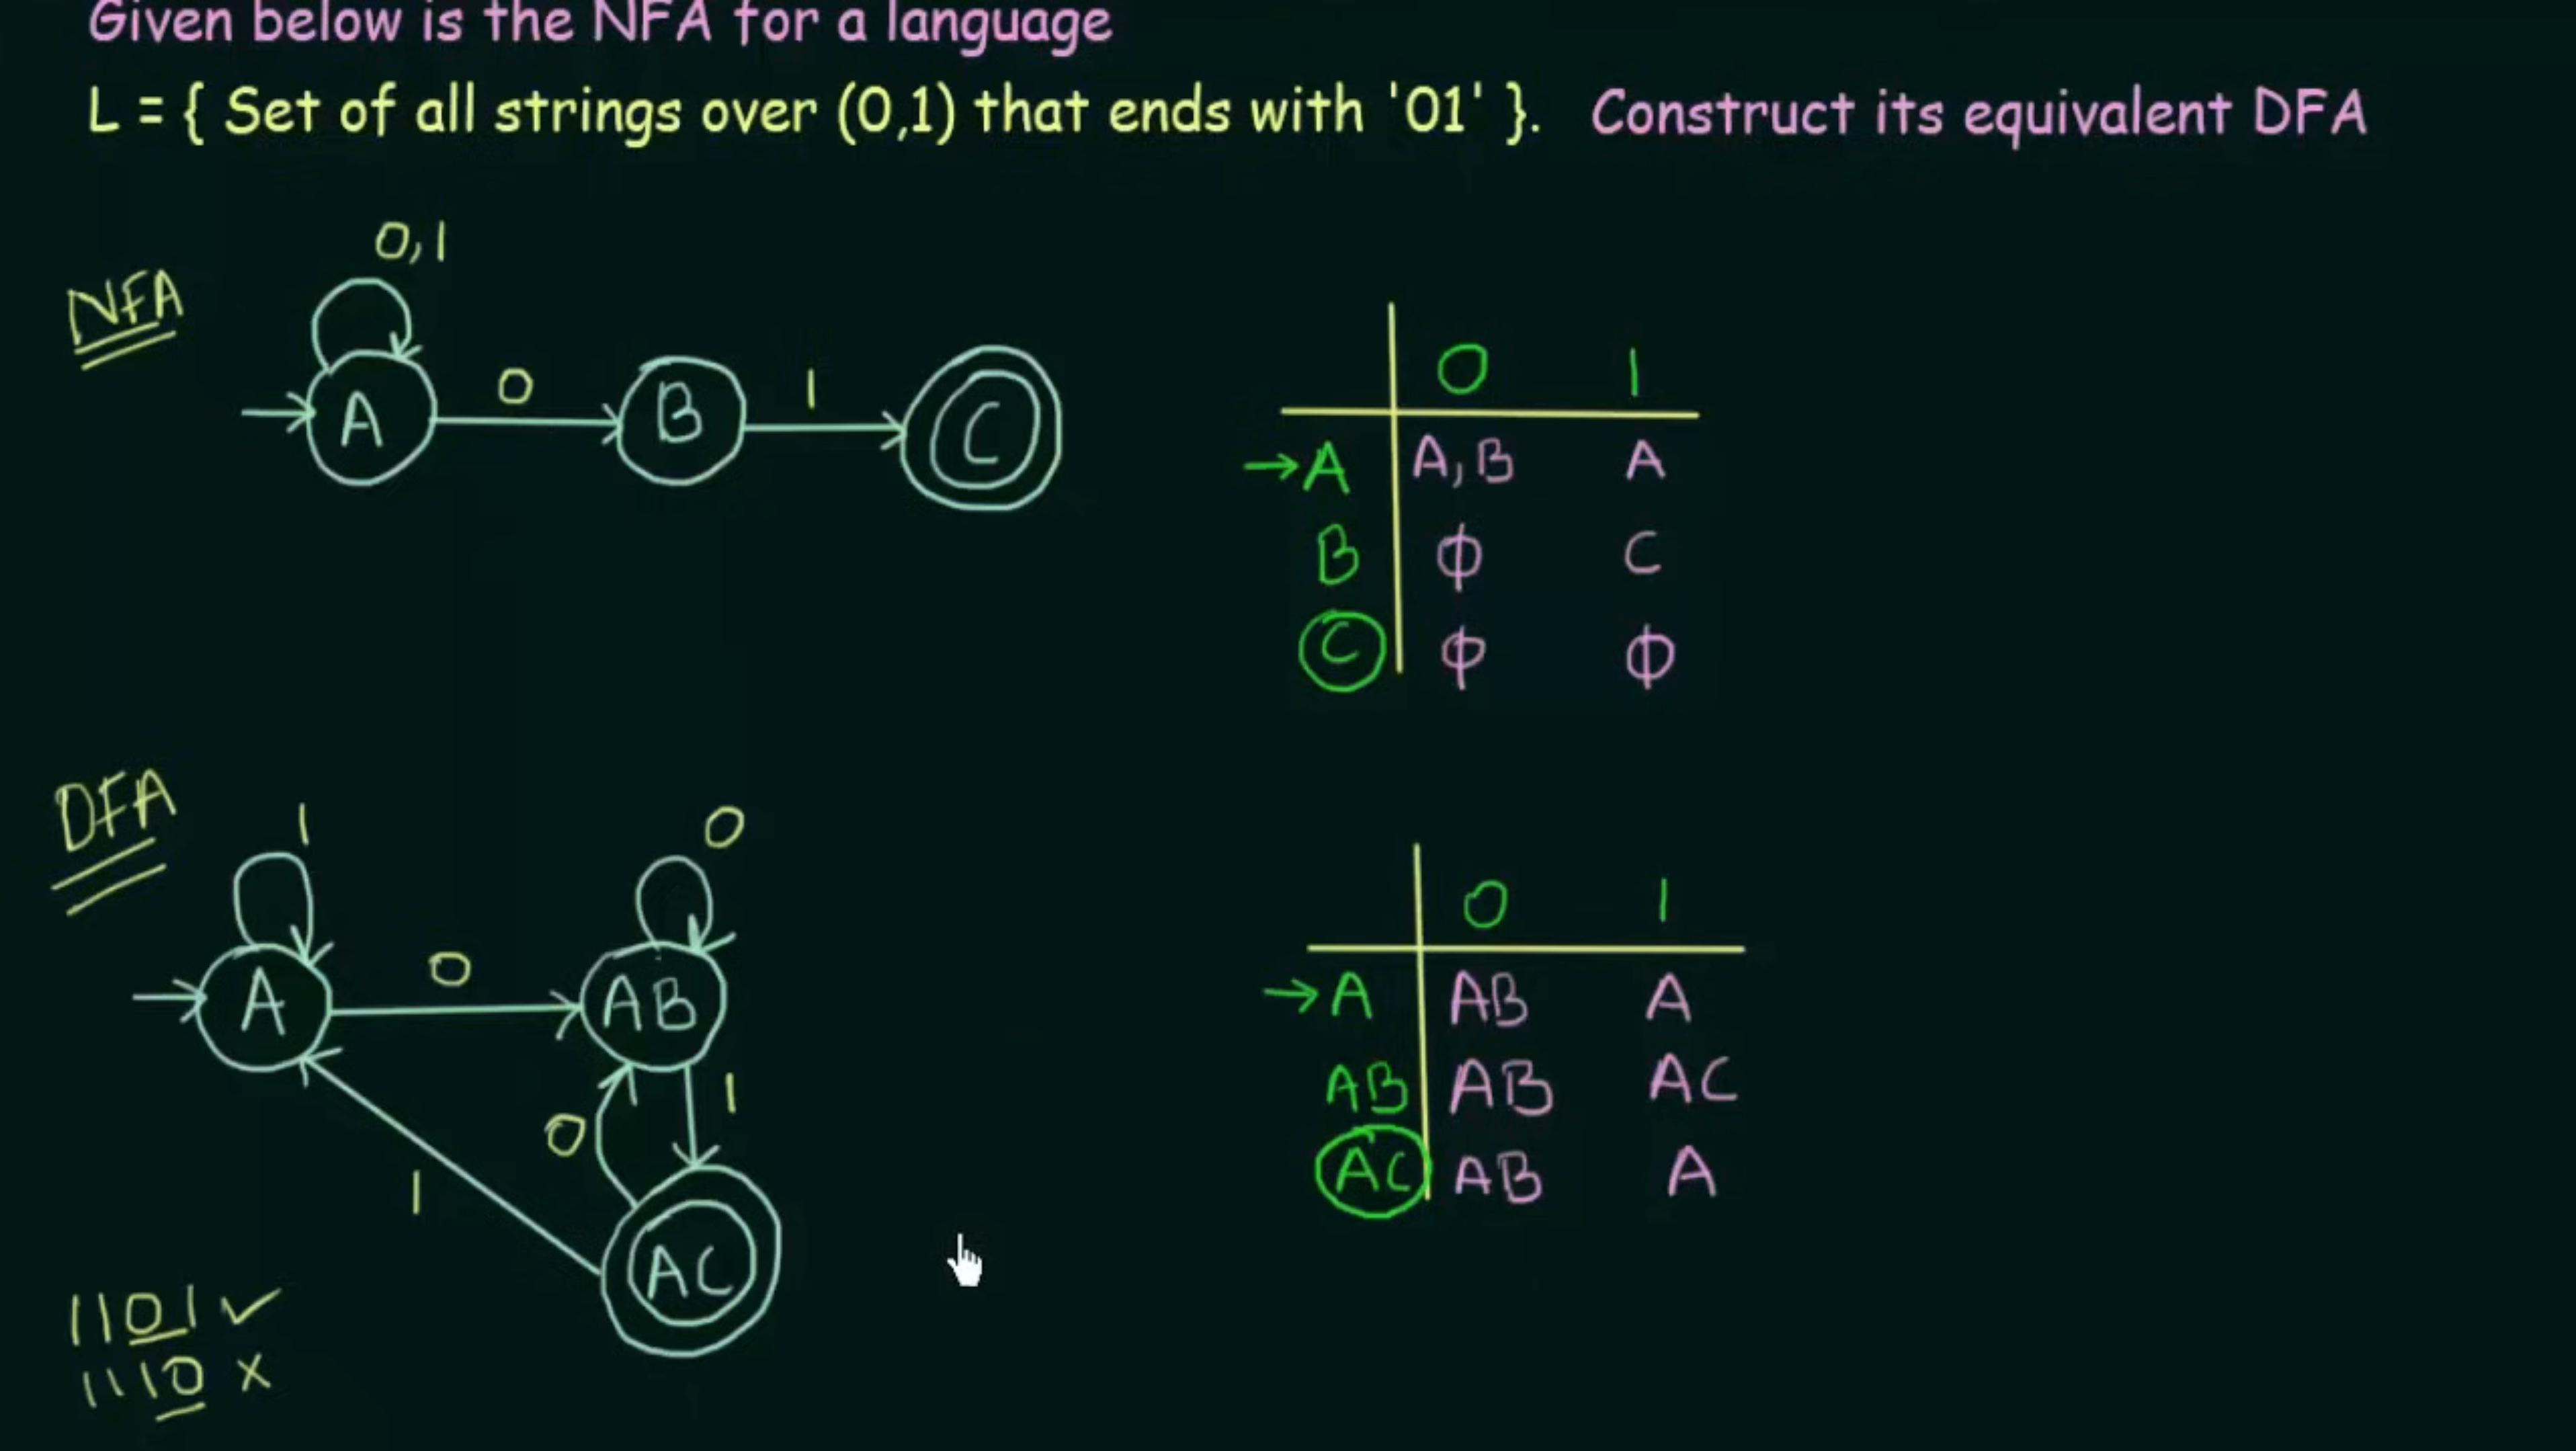 Given below is the NFA for a language
L = { Set of all strings over (0,1) that ends with '01' }. Construct its equivalent DFA
NFA
0,1
A 0 B 1 C
0 1
→A A,B A
B Φ C
C Φ Φ
DFA
1 0
A 0 AB
0 1
1
AC
0 1
→A AB A
AB AB AC
AC AB A
1101 ✓
1110 x